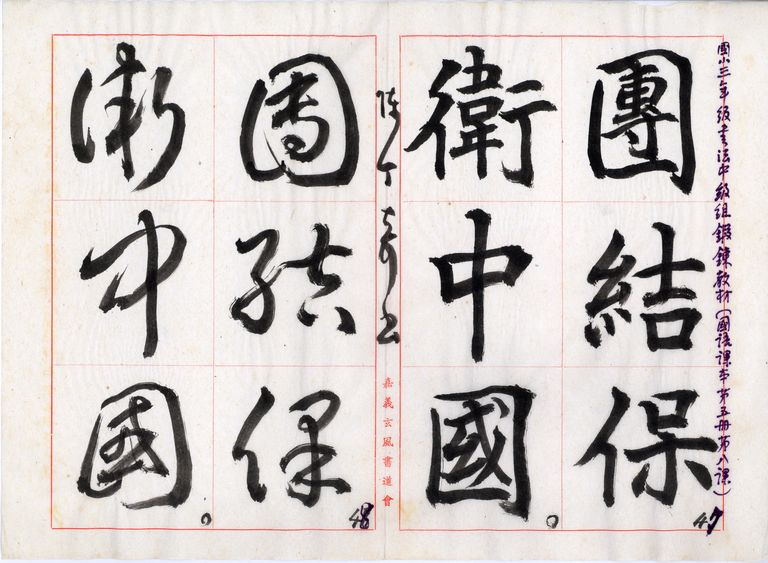 國小三年級書法中級組鍛鍊教材(國語課本第五冊第八課)
團結保
衛中國。
47
陳丁奇書
嘉義玄風書道會
團結保
衛中國。
48